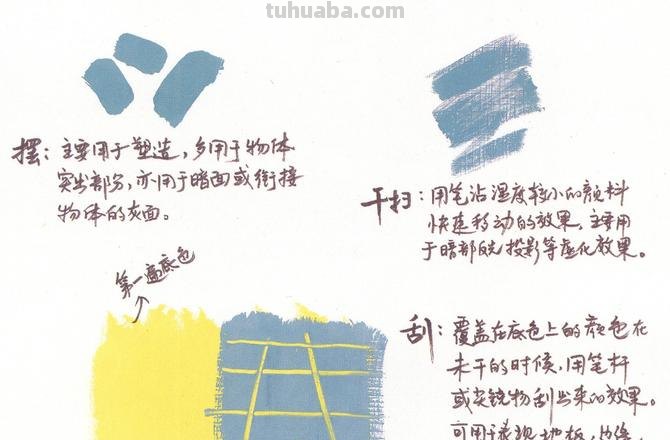 tuhuaba.com
摆：主要用于塑造，多用于物体
突出部分，亦用于暗面或衔接
物体的灰面。
干扫：用笔沾湿度较小的颜料
快速移动的效果，主要用
于暗部反光投影等虚化效果。
第一遍底色
刮：覆盖在底色上的颜色在
未干的时候，用笔杆
或尖锐物刮出来的效果。
可用于表现地板，